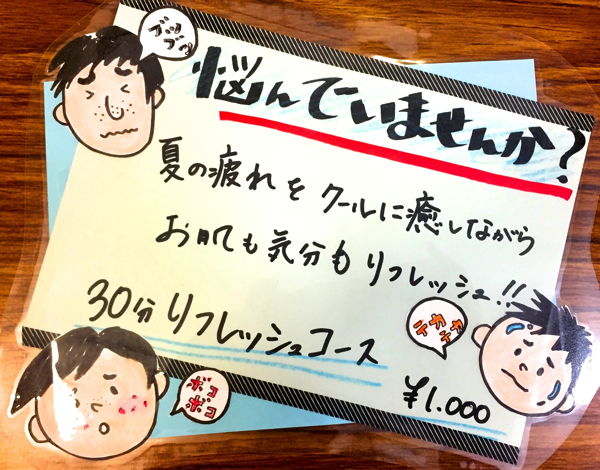 ブツ
ブツ
悩んでいませんか?
夏の疲れを クールに癒しながら
お肌も気分もリフレッシュ!!
30分リフレッシュコース
テカ
テカ
ボコ
ボコ
¥1.000